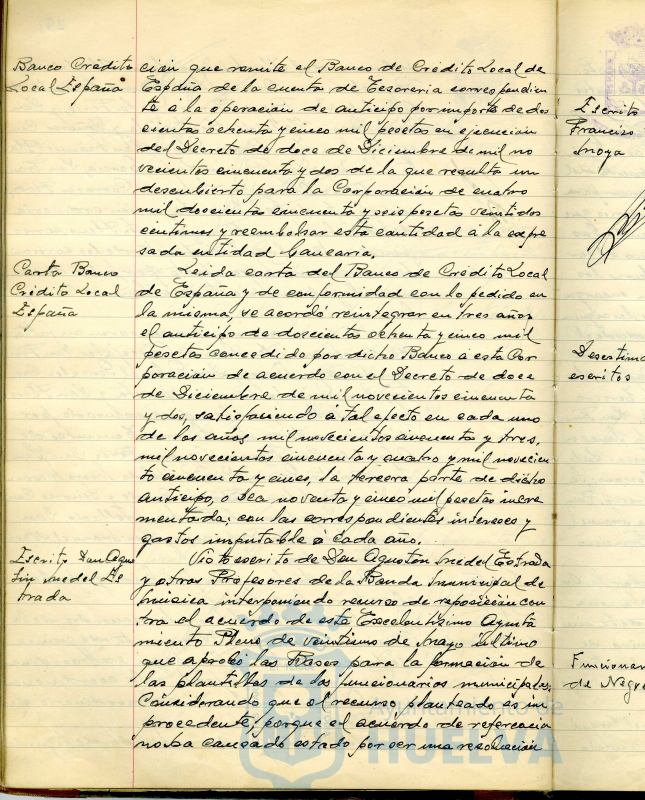 Banco Crédito
Local España
ción que remite el Banco de Crédito Local de
España de la cuenta de Tesorería correspondien
te á la operación de anticipo por importe de dos
cientas ochenta y cinco mil pesetas en ejecución
del Decreto de doce de Diciembre de mil no
vecientos cincuenta y dos de la que resulta un
descubierto para la Corporación de cuatro
mil doscientas cincuenta y seis pesetas veintidos
centimos y reembolsar esta cantidad á la expre
sada entidad bancaria.
Carta Banco
Crédito Local
España
Leida carta del Banco de Crédito Local
de España y de conformidad con lo pedido en
la misma, se acordó reintegrar en tres años
el anticipo de doscientas ochenta y cinco mil
pesetas concedido por dicho Banco a esta Cor
poración de acuerdo con el Decreto de doce
de Diciembre de mil novecientos cincuenta
y dos, satisfaciendo á tal efecto en cada uno
de los años mil novecientos cincuenta y tres,
mil novecientos cincuenta y cuatro y mil novecien
to cincuenta y cinco, la tercera parte de dicho
anticipo, o sea noventa y cinco mil pesetas incre
mentada; con las correspondientes intereses y
gastos imputable a cada año.
Escrito Don Agus
tin Estrada
Visto escrito de Don Agustin Estrada
y otros Profesores de la Banda Municipal de
Música interponiendo recurso de reposición con
tra el acuerdo de este Excelentísimo Ayunta
miento Pleno de veintiuno de Mayo último
que aprobó las Bases para la formación de
las plantillas de los funcionarios municipales,
Considerando que el recurso planteado es im
procedente, porque el acuerdo de referencia
no ha causado estado por ser una resolución
Escrito
Francisco
Moya
Desestima
escritos
Funcionar
de Negr
Ayuntamiento de
HUELVA